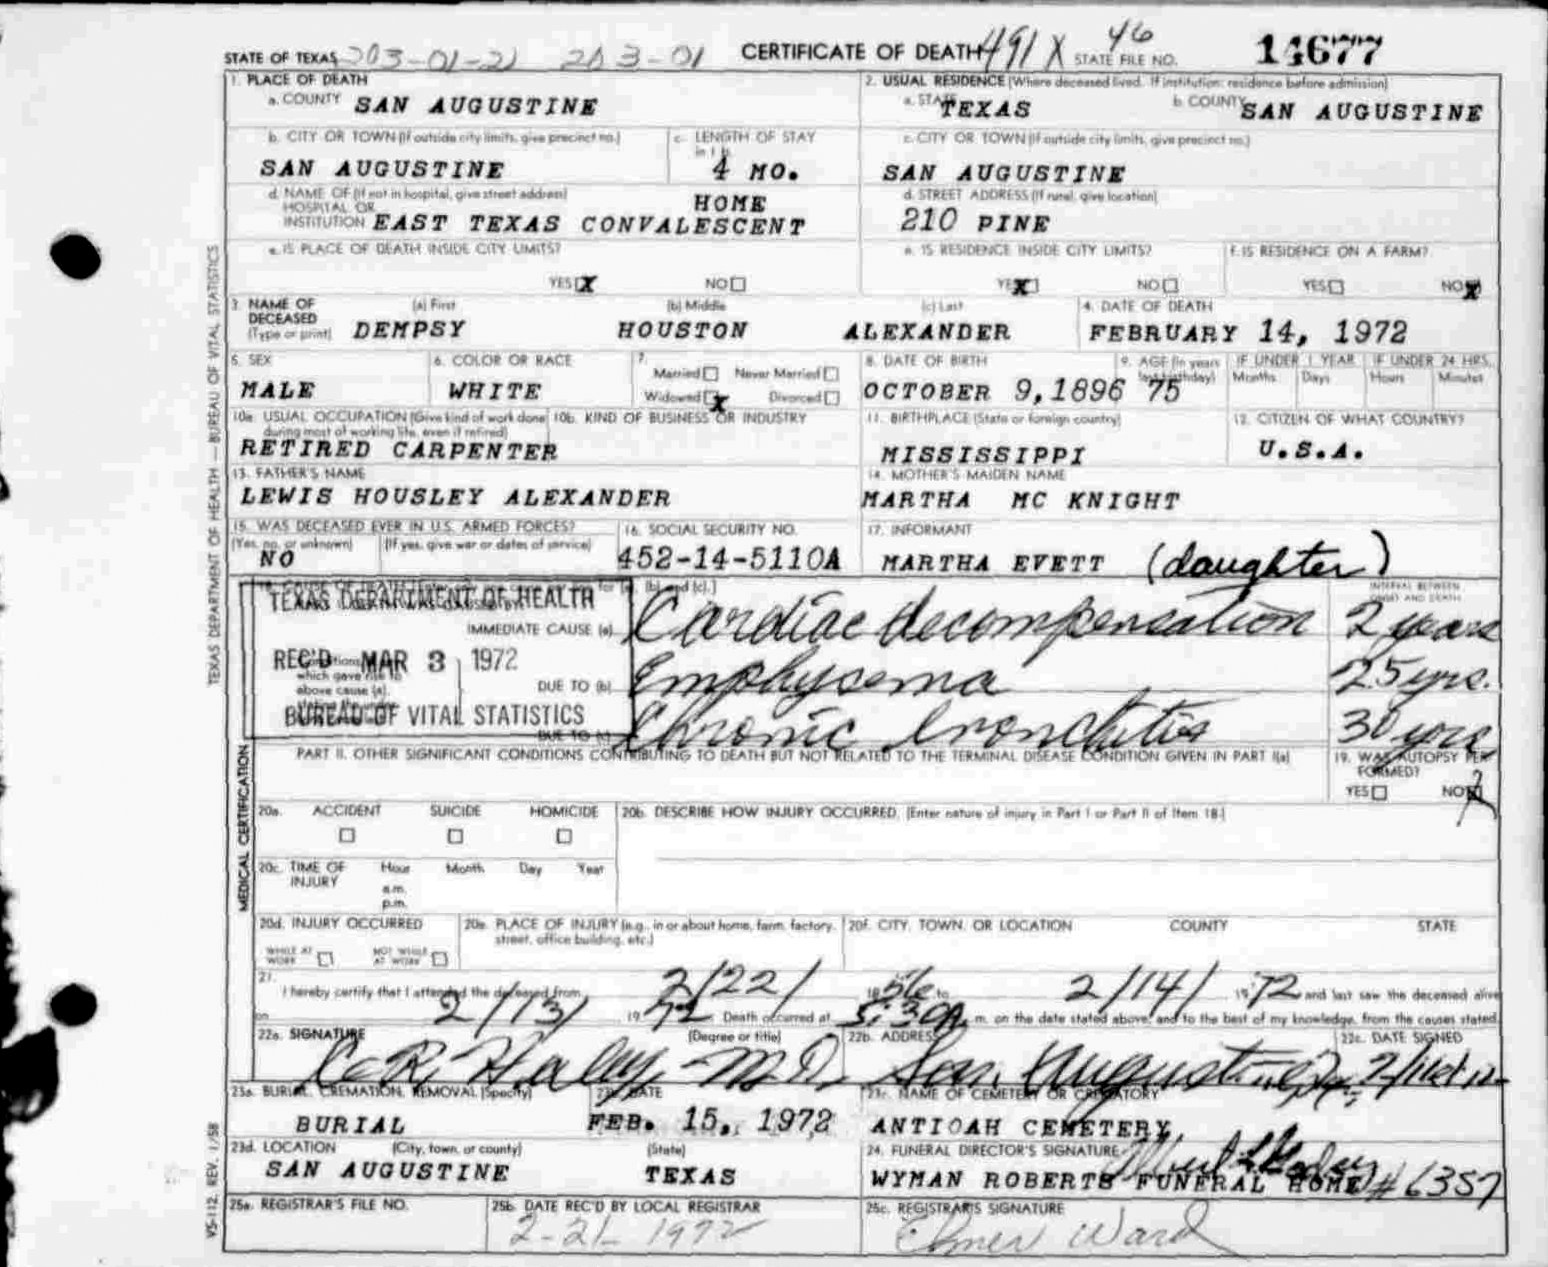 STATE OF TEXAS 203-01-21 203-01 CERTIFICATE OF DEATH 491X 46 STATE FILE NO. 14677
1. PLACE OF DEATH
a. COUNTY SAN AUGUSTINE
2. USUAL RESIDENCE (Where deceased lived. If institution: residence before admission)
a. STATE TEXAS b. COUNTY SAN AUGUSTINE
b. CITY OR TOWN (If outside city limits, give precinct no.)
SAN AUGUSTINE
c. LENGTH OF STAY
in 1 b.
4 MO.
c. CITY OR TOWN (If outside city limits, give precinct no.)
SAN AUGUSTINE
d. NAME OF (If not in hospital, give street address)
HOSPITAL OR HOME
INSTITUTION EAST TEXAS CONVALESCENT
d. STREET ADDRESS (If rural, give location)
210 PINE
e. IS PLACE OF DEATH INSIDE CITY LIMITS?
YES X NO
e. IS RESIDENCE INSIDE CITY LIMITS?
YES X NO
f. IS RESIDENCE ON A FARM?
YES NO X
3. NAME OF DECEASED (Type or print)
(a) First (b) Middle (c) Last
DEMPSY HOUSTON ALEXANDER
4. DATE OF DEATH
FEBRUARY 14, 1972
5. SEX
MALE
6. COLOR OR RACE
WHITE
7.
Married Never Married
Widowed X Divorced
8. DATE OF BIRTH
OCTOBER 9,1896
9. AGE (In years last birthday)
75
IF UNDER 1 YEAR IF UNDER 24 HRS.
Months Days Hours Minutes
10a. USUAL OCCUPATION (Give kind of work done
during most of working life, even if retired)
RETIRED CARPENTER
10b. KIND OF BUSINESS OR INDUSTRY
11. BIRTHPLACE (State or foreign country)
MISSISSIPPI
12. CITIZEN OF WHAT COUNTRY?
U.S.A.
13. FATHER'S NAME
LEWIS HOUSLEY ALEXANDER
14. MOTHER'S MAIDEN NAME
MARTHA MC KNIGHT
15. WAS DECEASED EVER IN U.S. ARMED FORCES?
(Yes, no, or unknown) (If yes, give war or dates of service)
NO
16. SOCIAL SECURITY NO.
452-14-5110A
17. INFORMANT
MARTHA EVETT (daughter)
TEXAS DEPARTMENT OF HEALTH
REC'D MAR 3 1972
BUREAU OF VITAL STATISTICS
INTERVAL BETWEEN
ONSET AND DEATH
IMMEDIATE CAUSE (a) Cardiac decompensation 2 years
which gave rise to
above cause (a),
DUE TO (b) Emphysema 25 yrs.
DUE TO (c) Chronic bronchitis 30 yrs
PART II. OTHER SIGNIFICANT CONDITIONS CONTRIBUTING TO DEATH BUT NOT RELATED TO THE TERMINAL DISEASE CONDITION GIVEN IN PART I(a)
19. WAS AUTOPSY PERFORMED?
YES NO X
MEDICAL CERTIFICATION
20a. ACCIDENT SUICIDE HOMICIDE
20b. DESCRIBE HOW INJURY OCCURRED. (Enter nature of injury in Part I or Part II of Item 18.)
20c. TIME OF INJURY
Hour Month Day Year
a.m.
p.m.
20d. INJURY OCCURRED
WHILE AT WORK NOT WHILE AT WORK
20e. PLACE OF INJURY (e.g., in or about home, farm, factory,
street, office building, etc.)
20f. CITY, TOWN, OR LOCATION COUNTY STATE
21.
I hereby certify that I attended the deceased from 2/22/ 1956 to 2/14/ 1972 and last saw the deceased alive
on 2/13/ 1972 Death occurred at 5:30A m. on the date stated above, and to the best of my knowledge, from the causes stated.
22a. SIGNATURE (Degree or title)
C. R. Haley, M.D.
22b. ADDRESS
San Augustine
22c. DATE SIGNED
23a. BURIAL, CREMATION, REMOVAL (Specify)
BURIAL
23b. DATE
FEB. 15, 1972
23c. NAME OF CEMETERY OR CREMATORY
ANTIOAH CEMETERY
23d. LOCATION (City, town, or county) (State)
SAN AUGUSTINE TEXAS
24. FUNERAL DIRECTOR'S SIGNATURE
WYMAN ROBERTS FUNERAL HOME #6357
25a. REGISTRAR'S FILE NO.
25b. DATE REC'D BY LOCAL REGISTRAR
2-21-1972
25c. REGISTRAR'S SIGNATURE
Elmer Ward
TEXAS DEPARTMENT OF HEALTH — BUREAU OF VITAL STATISTICS
VS-112, REV. 1/58